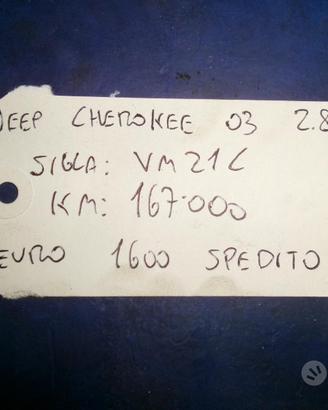 JEEP CHEROKEE 03 2.8
SIGLA: VM21C
KM: 167.000
EURO 1600 SPEDITO